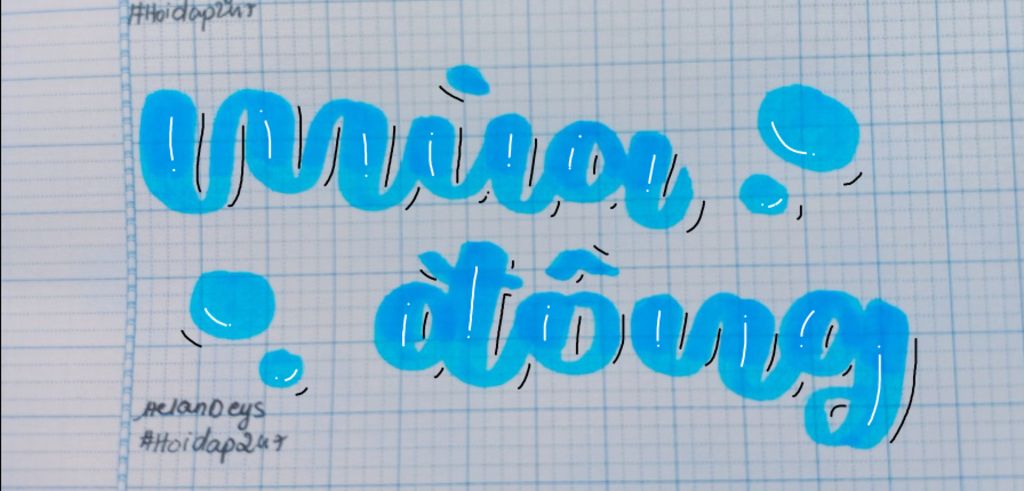 #Hoidap247
mùa
đông
HelanDeys
#Hoidap247